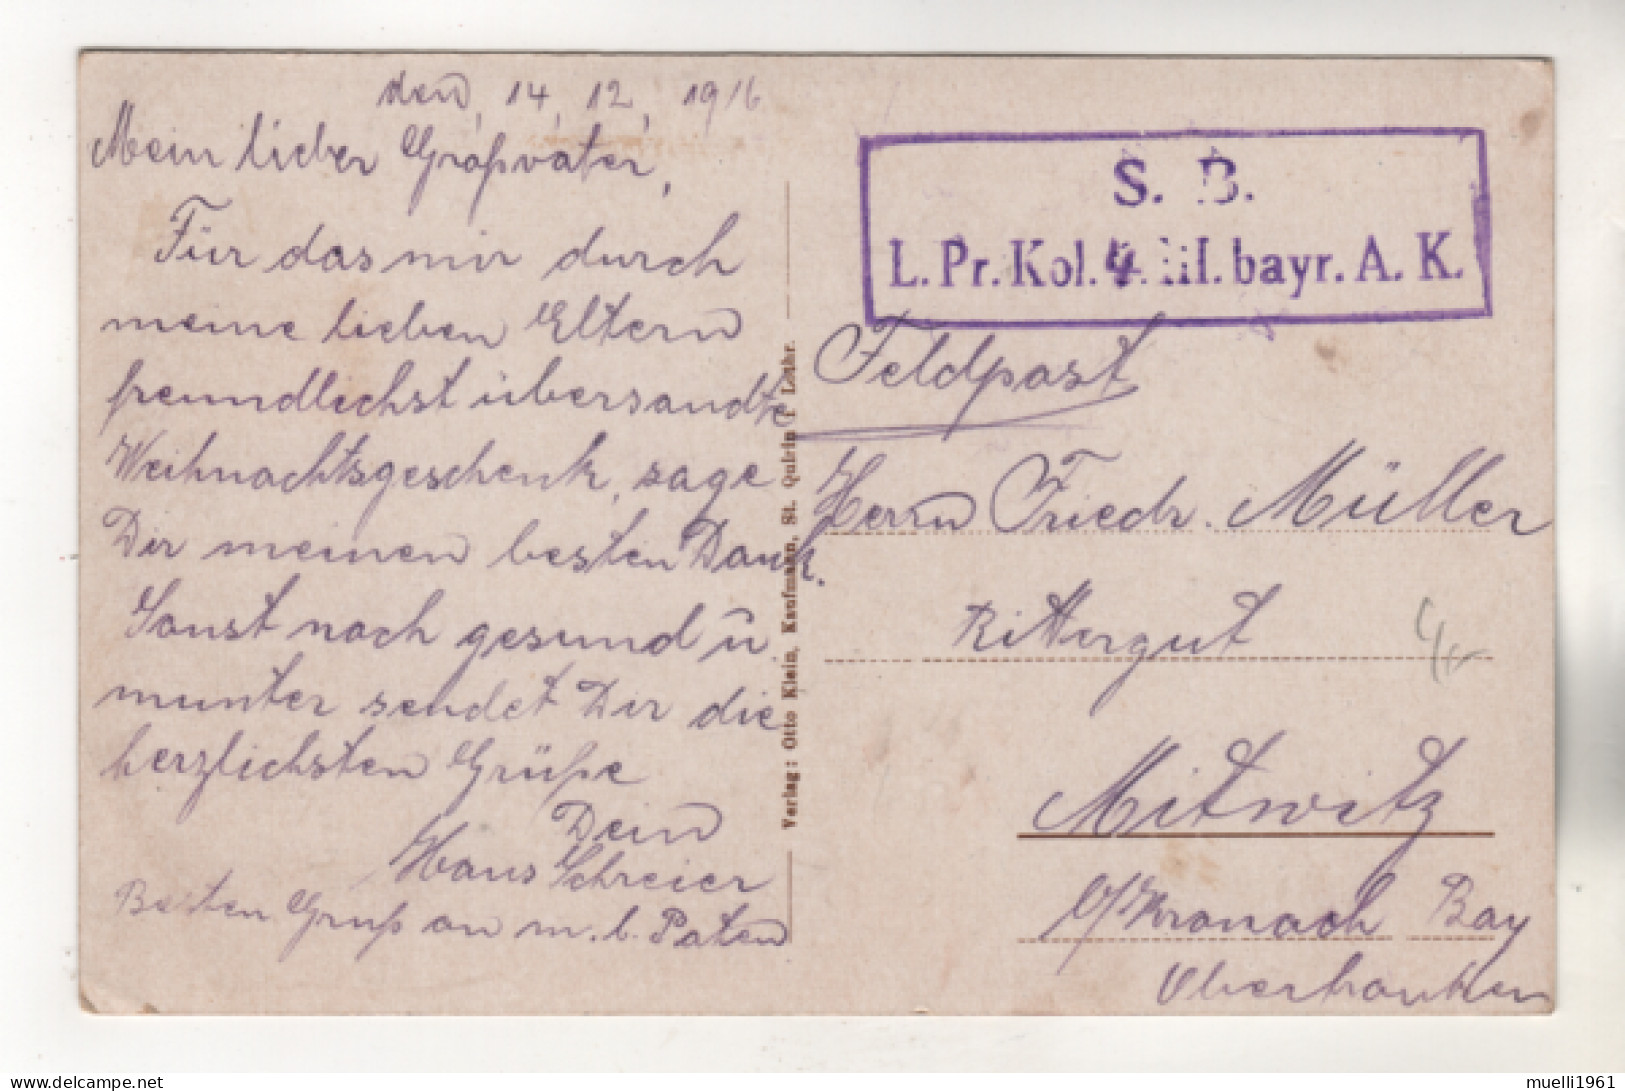 den, 14, 12, 1916
Mein lieber Großvater,
Für das mir durch
meine lieben Eltern
freundlichst übersandte
Weihnachtsgeschenk, sage
Dir meinen besten Dank.
Sonst noch gesund ū
munter sendet Dir die
herzlichsten Grüße
Dein
Hans Schreier
Besten Gruß an m. l. Paten
Verlag: Otto Klein, Kaufmann, St. Quirin i Lothr.
S. B.
L. Pr. Kol. 4. III. bayr. A. K.
Feldpost
Herrn Friedr. Müller
Rittergut
Mitwitz
b/Kronach Bay
Oberfranken
muelli1961